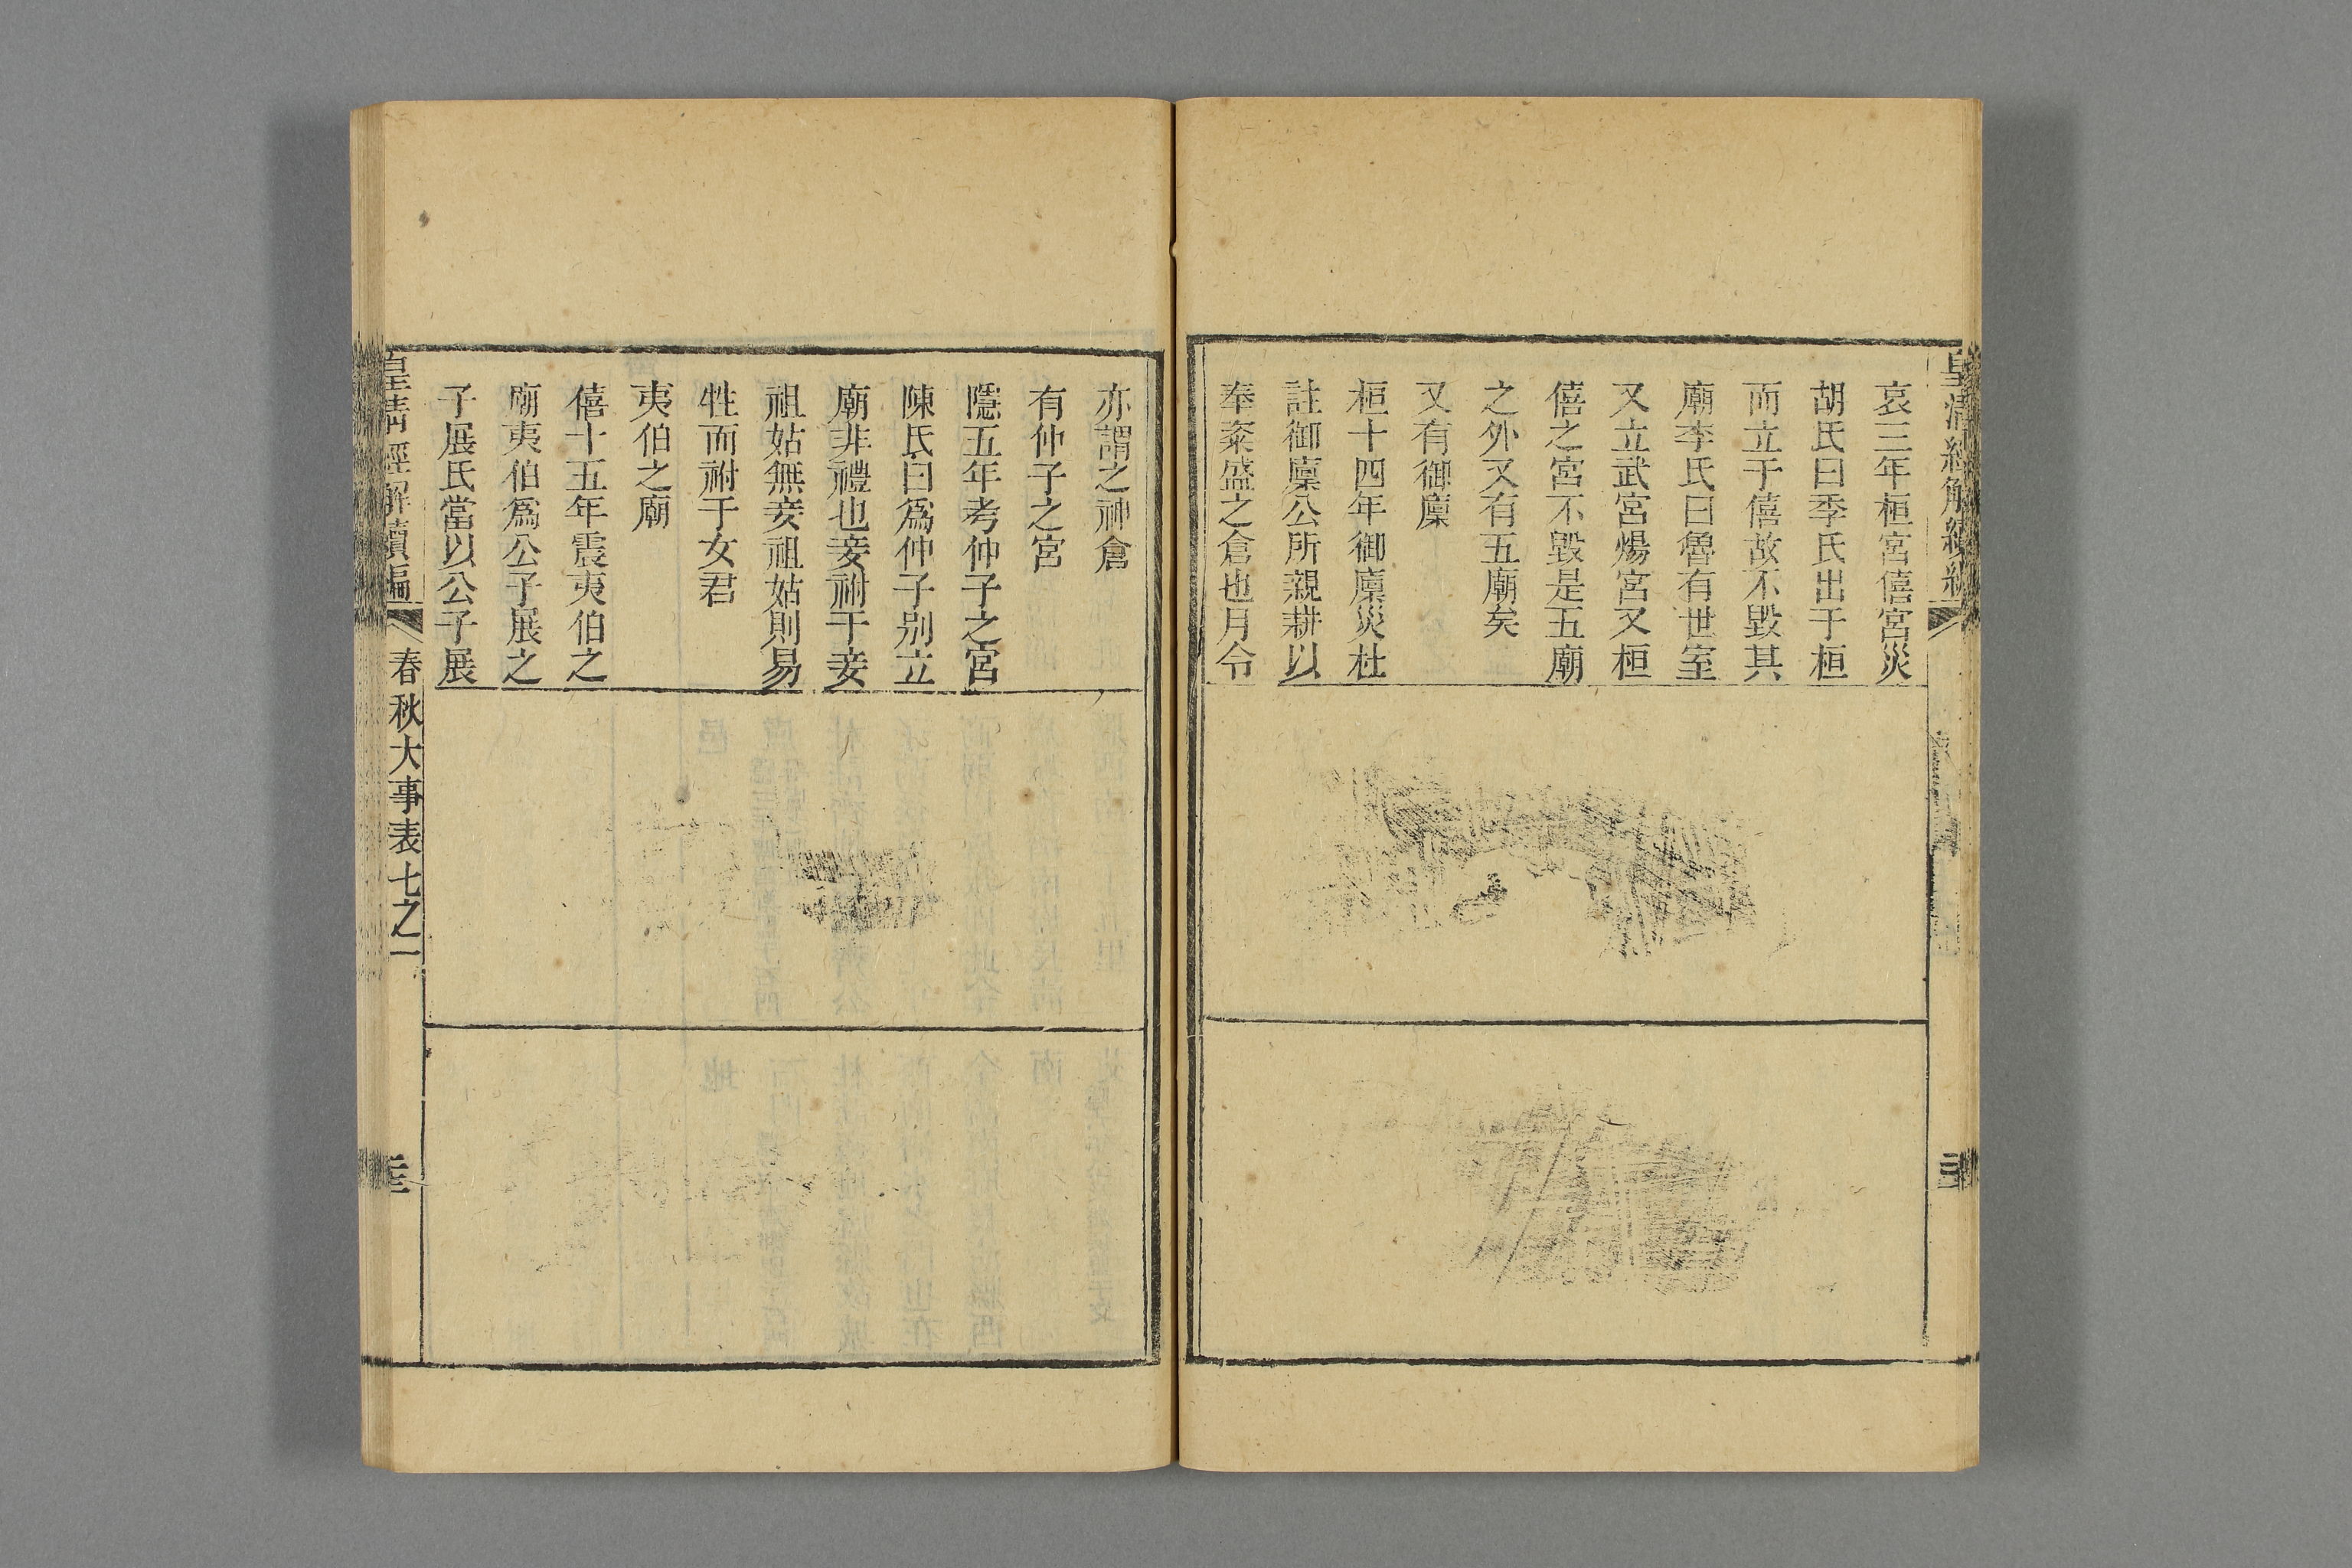 哀三年桓宮僖宮災
胡氏曰季氏出于桓
而立于僖故不毀其
廟李氏曰魯有世室
又立武宮煬宮又桓
僖之宮不毀是五廟
之外又有五廟矣
又有御廩
桓十四年御廩災杜
註御廩公所親耕以
奉粢盛之倉也月令
亦謂之神倉
有仲子之宮
隱五年考仲子之宮
陳氏曰為仲子別立
廟非禮也妾祔于妾
祖姑無妾祖姑則易
牲而祔于女君
夷伯之廟
僖十五年震夷伯之
廟夷伯為公子展之
子展氏當以公子展
皇清經解續編
春秋大事表七之一